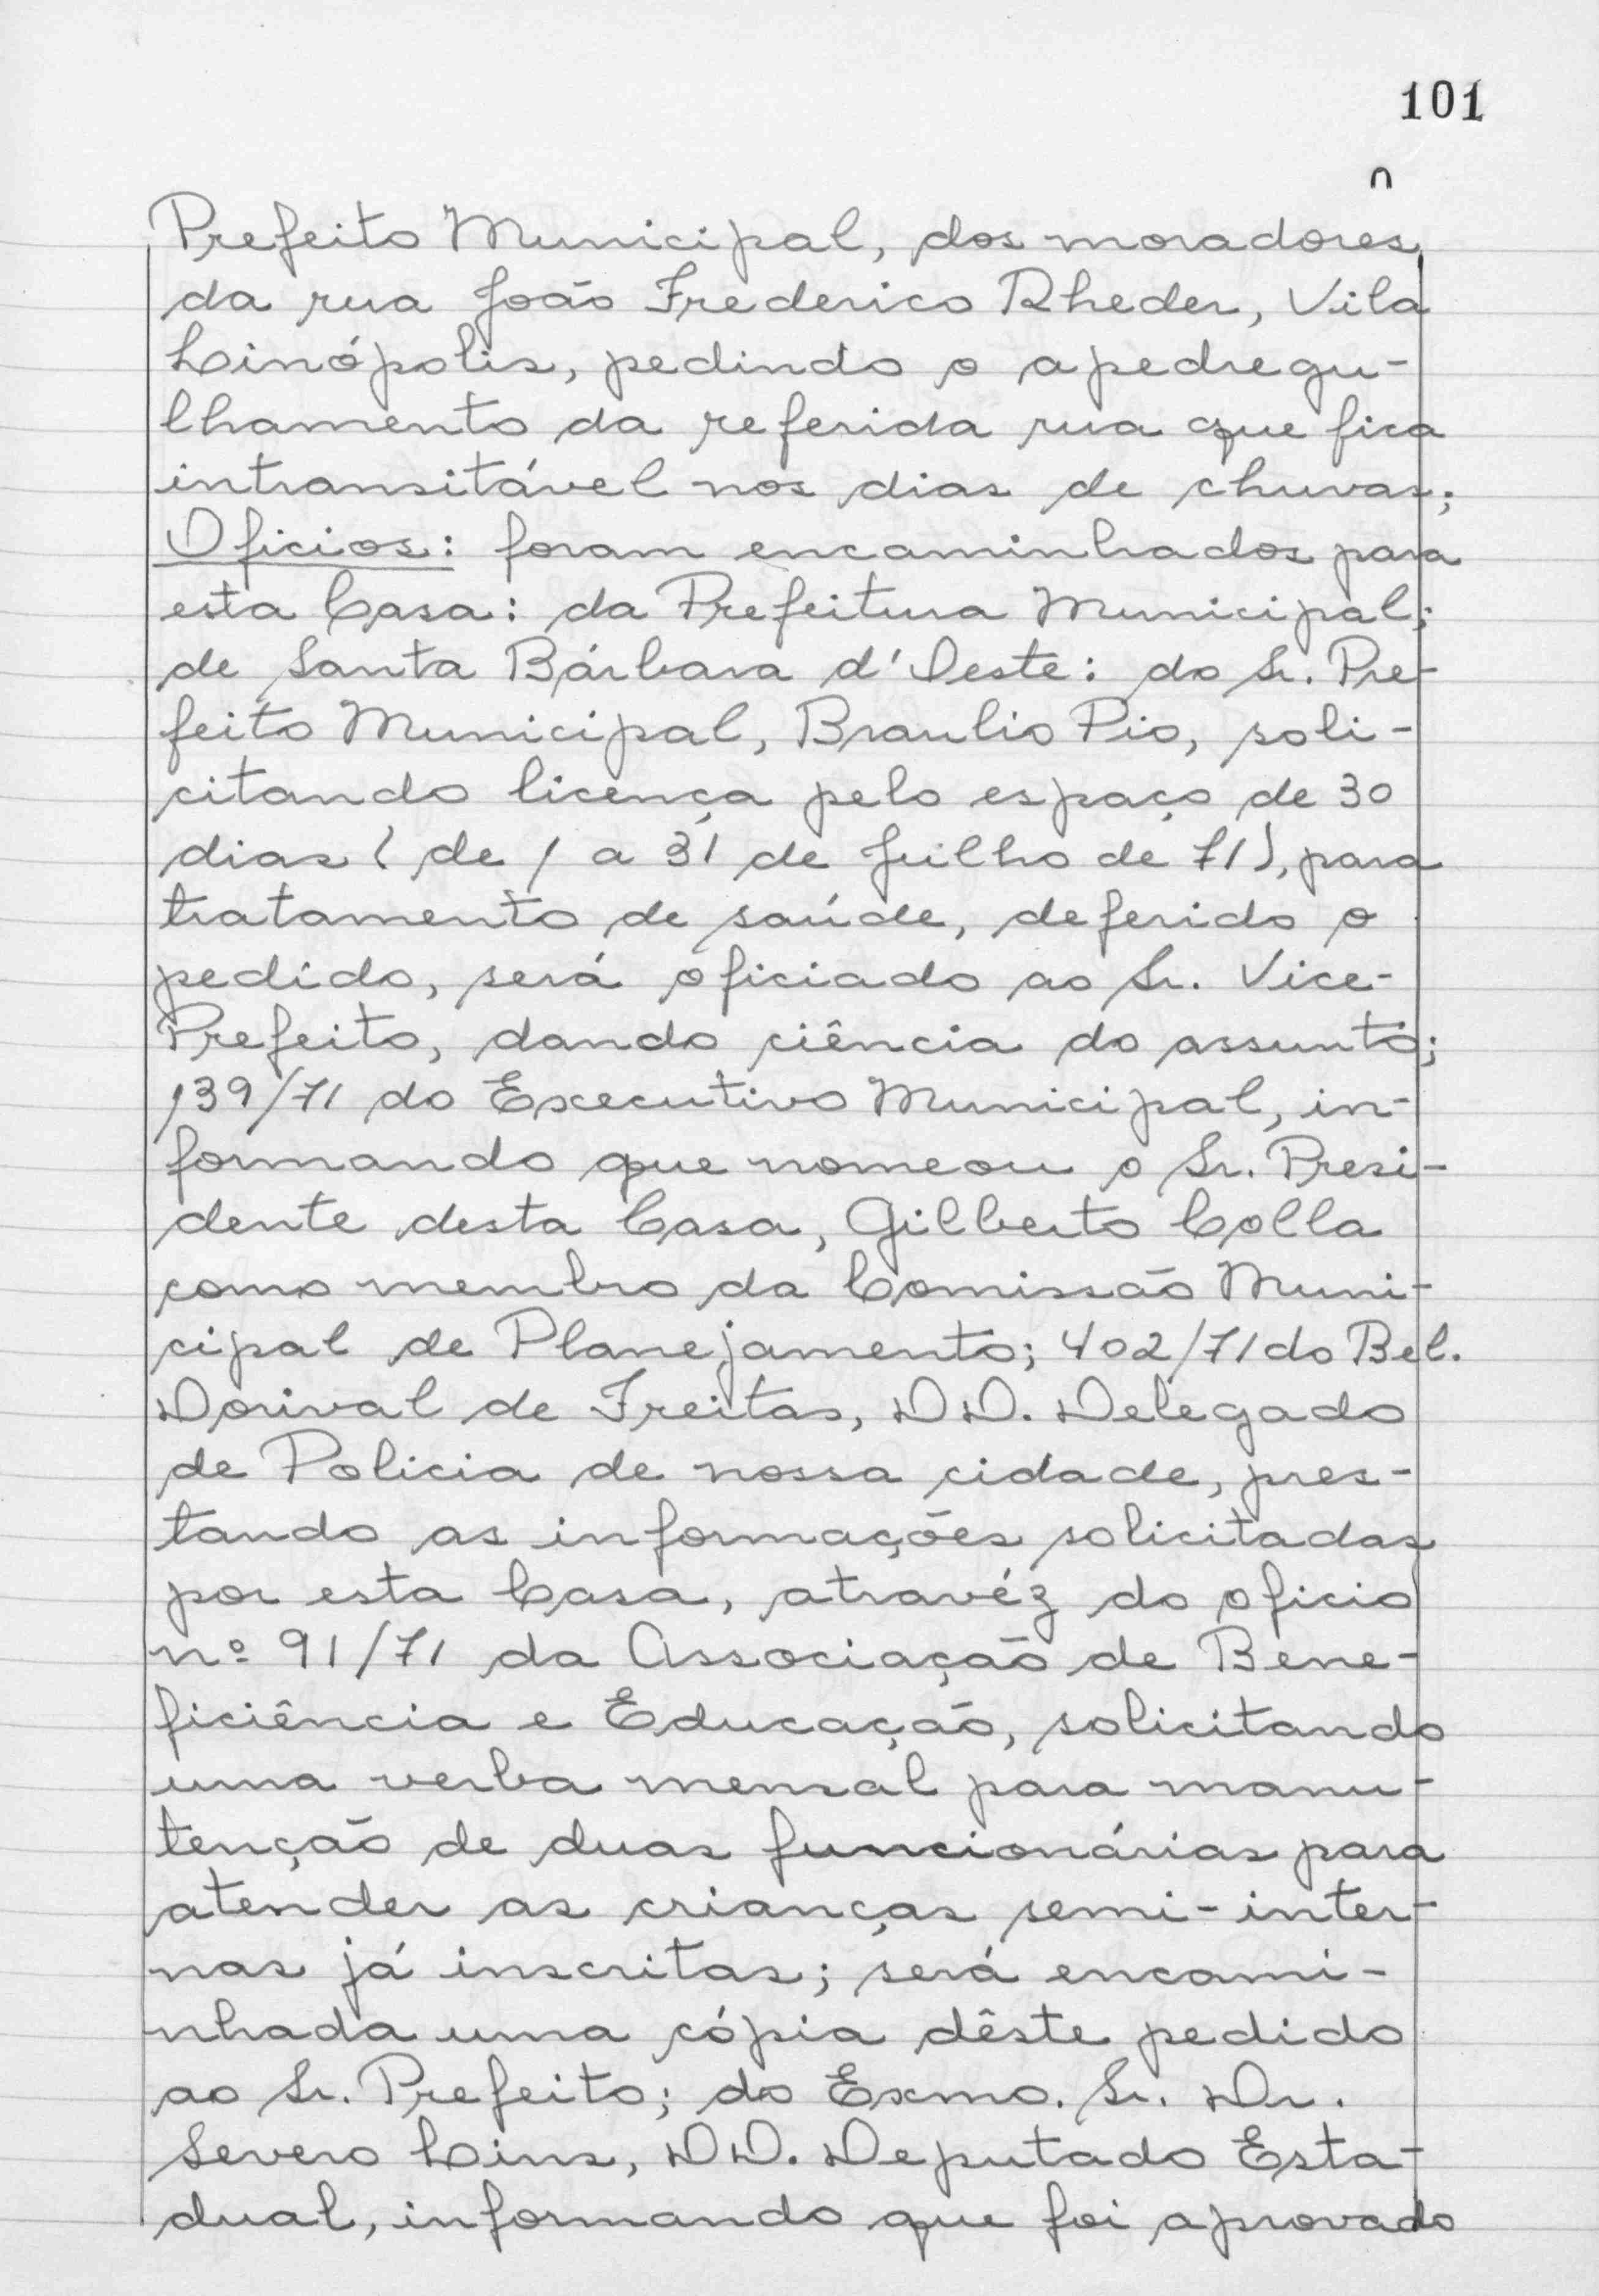 101
Prefeito Municipal, dos moradores
da rua João Frederico Rheder, Vila
Linópolis, pedindo o apedregu-
lhamento da referida rua que fica
intransitável nos dias de chuvas;
Oficios: foram encaminhados para
esta Casa: da Prefeitura Municipal;
de Santa Bárbara d'Oeste: do Sr. Pre-
feito Municipal, Braulio Pio, soli-
citando licença pelo espaço de 30
dias (de 1 a 31 de Julho de 71), para
tratamento de saúde, deferido o
pedido, será oficiado ao Sr. Vice-
Prefeito, dando ciência do assunto;
139/71 do Executivo Municipal, in-
formando que nomeou o Sr. Presi-
dente desta Casa, Gilberto Colla
como membro da Comissão Muni-
cipal de Planejamento; 402/71 do Bel.
Dorival de Freitas, DD. Delegado
de Policia de nossa cidade, pres-
tando as informações solicitadas
por esta Casa, atravéz do oficio
nº 91/71 da Associação de Bene-
ficiência e Educação, solicitando
uma verba mensal para manu-
tenção de duas funcionárias para
atender as crianças semi-inter-
nas já inscritas; será encami-
nhada uma cópia dêste pedido
ao Sr. Prefeito; do Exmo. Sr. Dr.
Severo Lins, DD. Deputado Esta-
dual, informando que foi aprovado